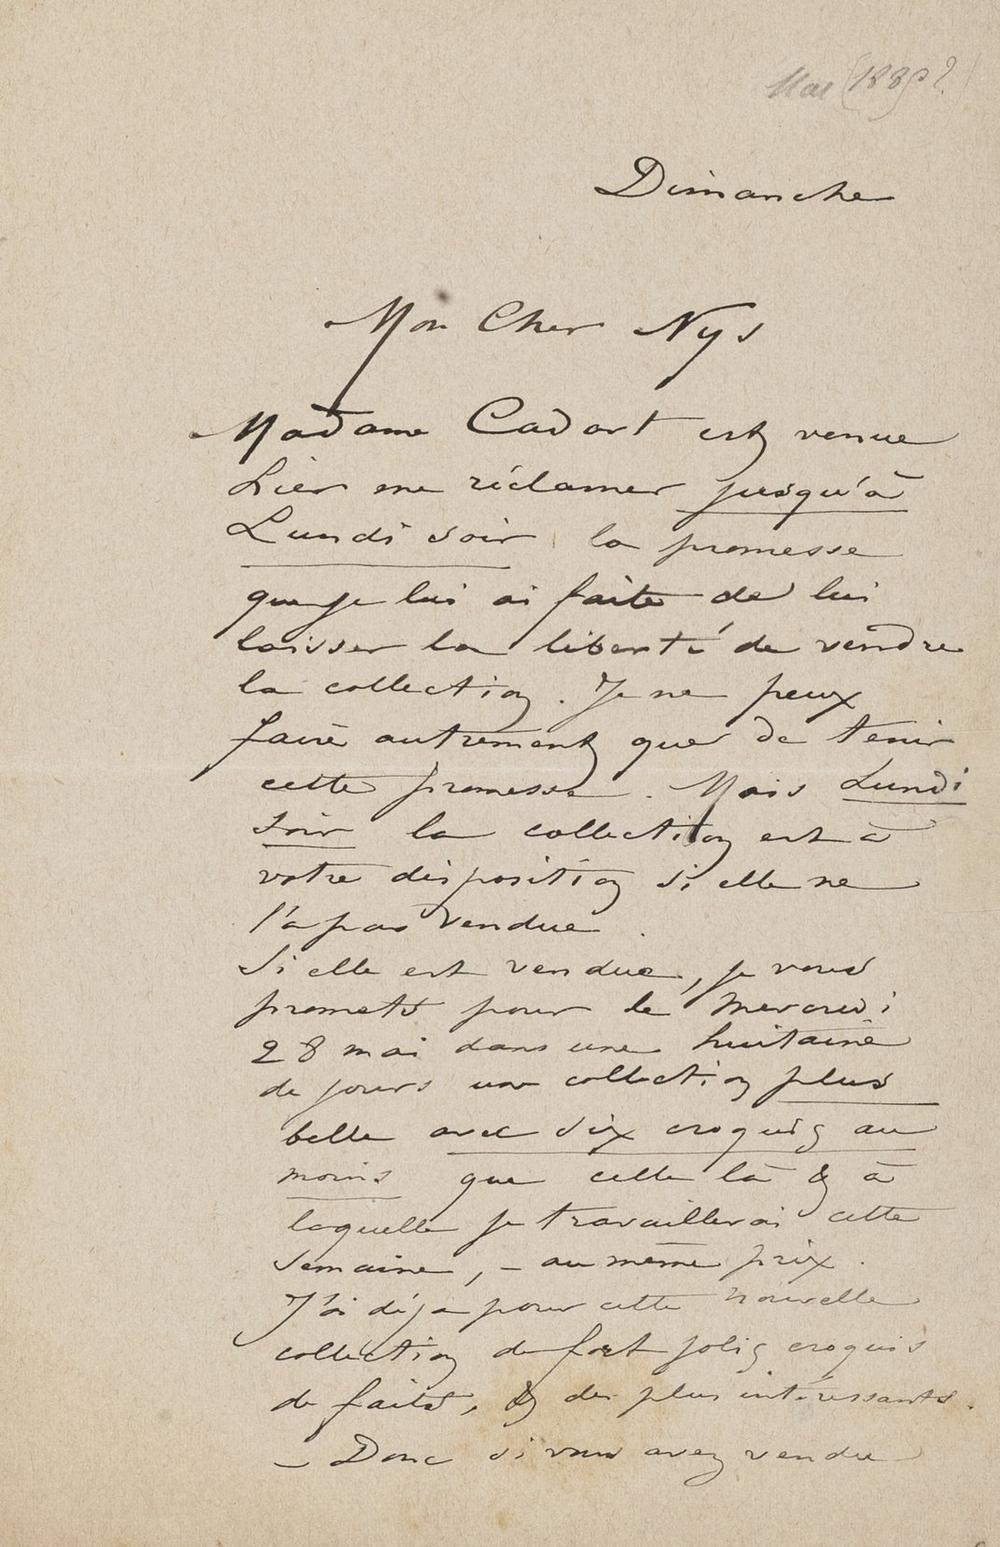 Mai (1880?)
Dimanche
Mon Cher Nys
Madame Cadart est venue
hier me réclamer jusqu'à
Lundi soir la promesse
que je lui ai faite de lui
laisser la liberté de vendre
la collection. Je ne peux
faire autrement que de tenir
cette promesse. Mais Lundi
soir la collection est à
votre disposition si elle ne
l'a pas vendue
Si elle est vendue, je vous
promets pour le mercredi
28 mai dans une huitaine
de jours une collection plus
belle avec dix croquis au
moins que celle là & à
laquelle je travaillerai cette
semaine, – au même prix.
J'ai déjà pour cette nouvelle
collection de fort jolis croquis
de faits, & des plus intéressants.
– Donc si vous avez vendu